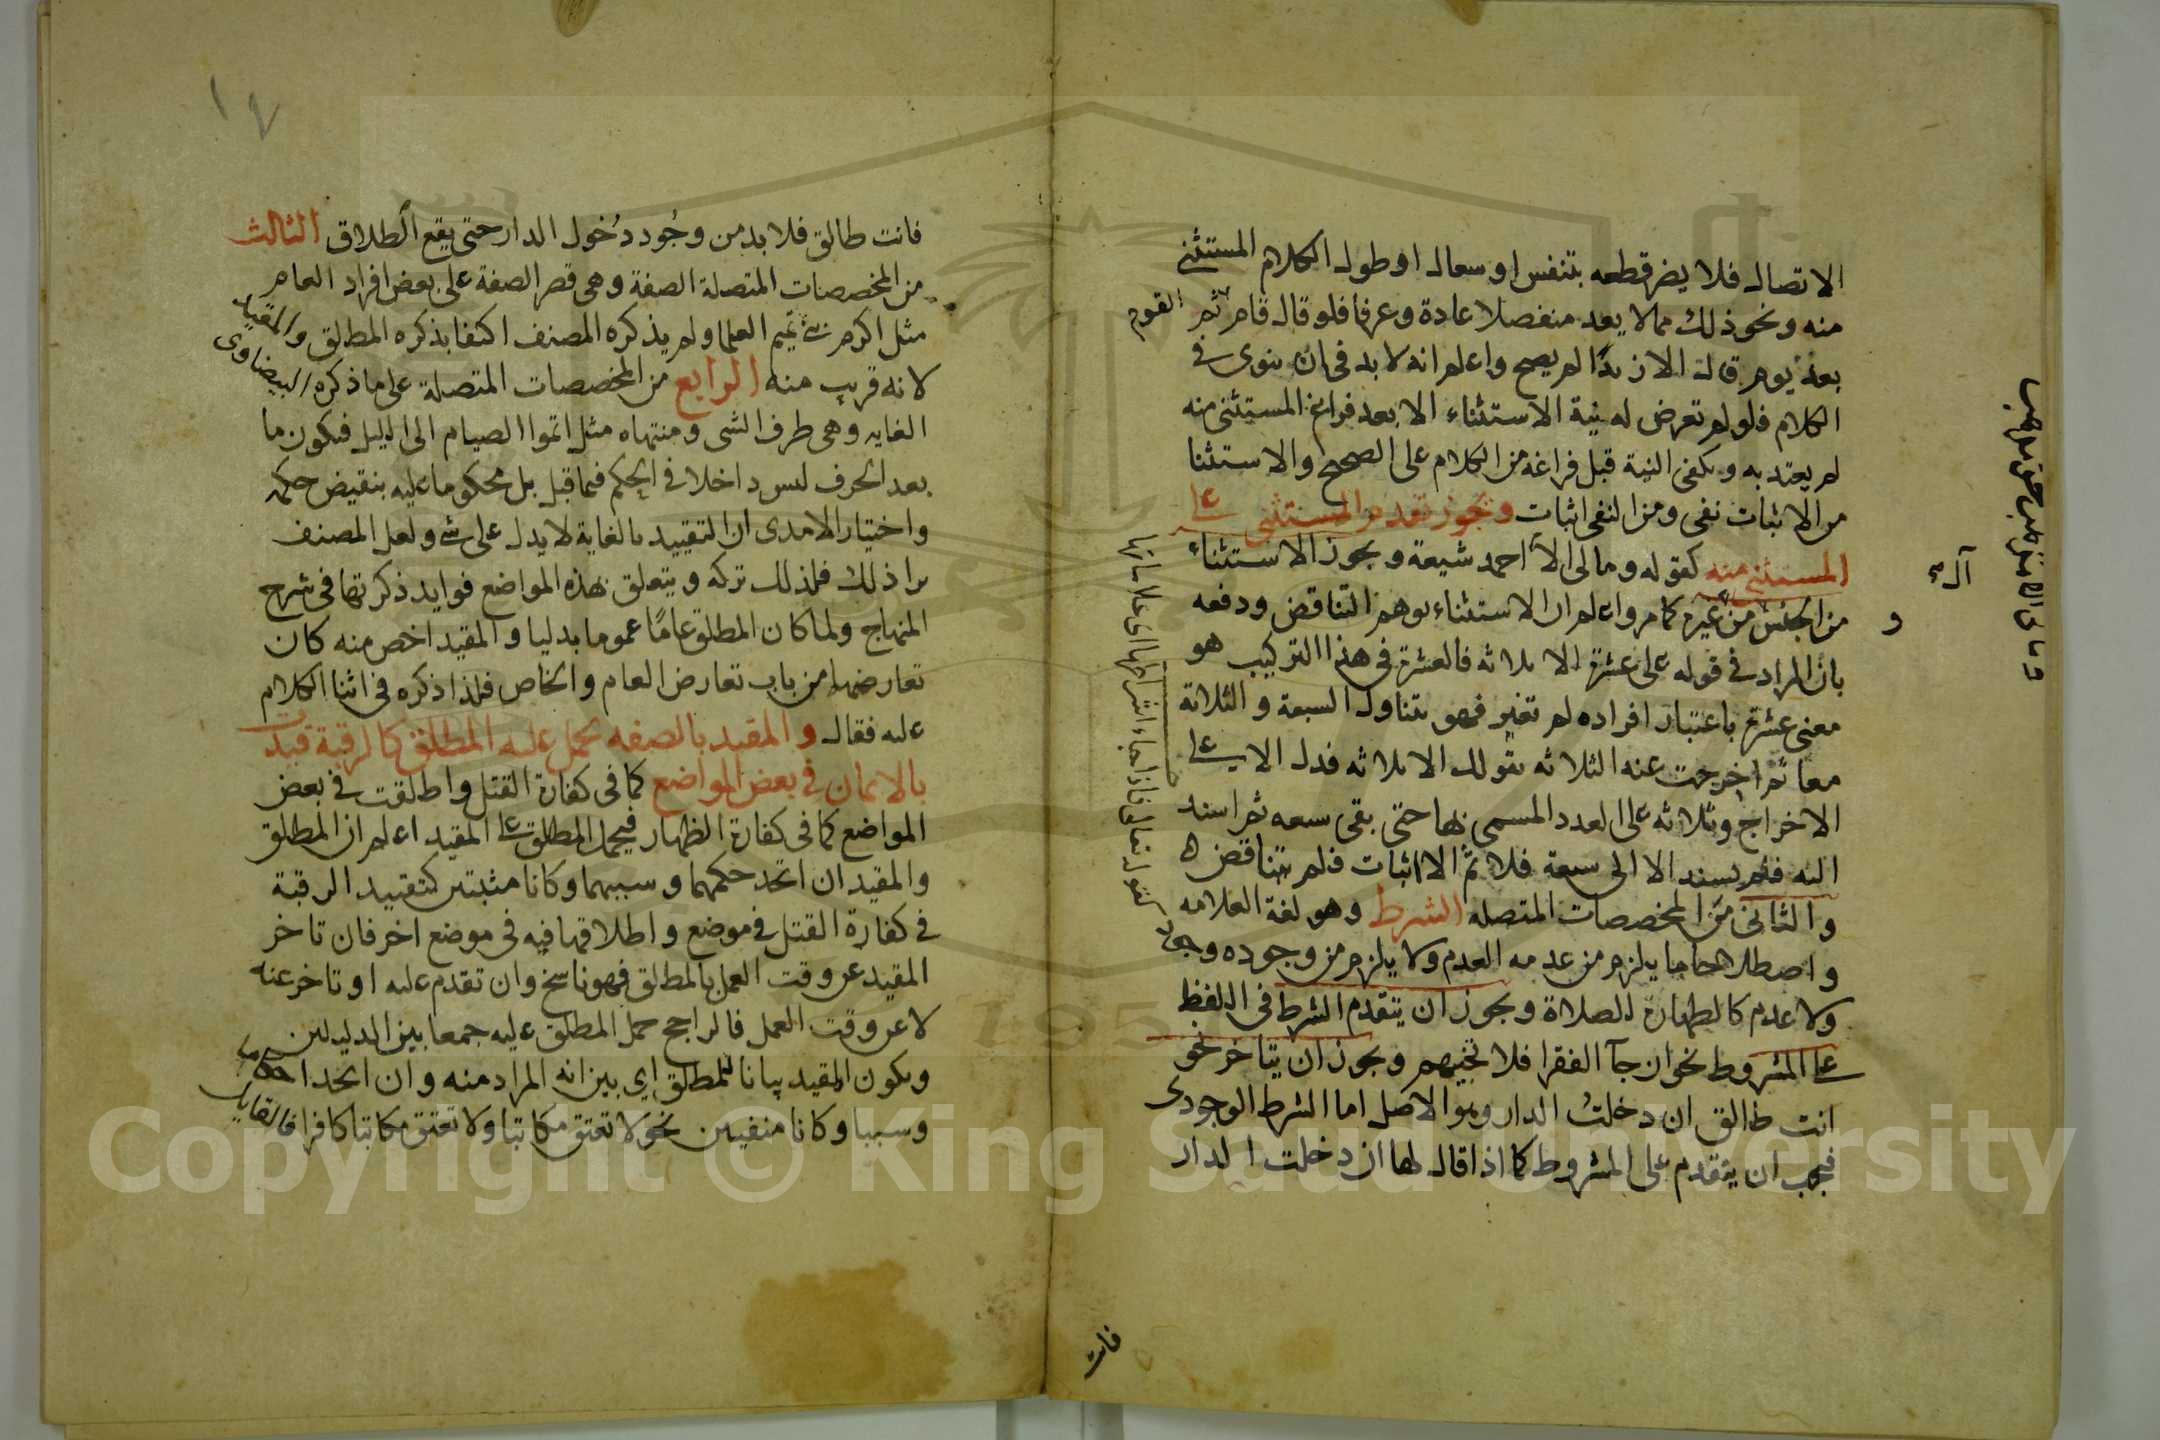 الاتصال فلا يضر قطعه بتنفس او سعال او طول الكلام المستثنى
منه ونحو ذلك مما لا يعد منفصلا عادة وعرفا فلو قال قام القوم ثم
بعد يوم قال الا زيدا لم يصح واعلم انه لا بد في ان ينوى في
الكلام فلو لم تعرض له نية الاستثناء الا بعد فراغ المستثنى منه
لم يعتد به ويكفى النية قبل فراغه من الكلام على الصحيح والاستثنا
من الاثبات نفى ومن النفى اثبات ويجوز تقديم المستثنى على
المستثنى منه كقوله ومالى الا آل احمد شيعة ويجوز الاستثناء
من الجنس ومن غيره كما مر واعلم ان الاستثناء يوهم التناقض ودفعه
بان المراد في قوله على عشرة الا ثلاثه فالعشرة في هذا التركيب هو
معنى عشرة باعتبار افراده لم تغير فهو يتناول السبعة والثلاثة
معا ثم اخرجت عنه الثلاثه بقولك الا ثلاثه فدل الا على
الاخراج وثلاثه على العدد المسمى بها حتى بقى سبعه ثم اسند
اليه فلم يسند الا الى سبعة فلا ثم الا اثبات فلم يتناقض
والثاني من المخصصات المتصله الشرط وهو لغة العلامه
واصطلاحا ما يلزم من عدمه العدم ولا يلزم من وجوده وجود
ولا عدم كالطهارة للصلاة ويجوز ان يتقدم الشرط في اللفظ
على المشروط نحو ان جآ الفقرا فلا تجبهم ويجوز ان يتاخر نحو
انت طالق ان دخلت الدار وهو الاصل اما الشرط الوجودى
فيجب ان يتقدم على المشروط كما اذا قال لها ان دخلت الدار
آل
و
كقوله تعالى فقد جاء اشراطها اى علاماتها
فانت
١٧
فانت طالق فلا بد من وجود دخول الدار حتى يقع الطلاق الثالث
من المخصصات المتصلة الصفة وهى قصر الصفة على بعض افراد العام
مثل اكرم بنى تميم العلما ولم يذكره المصنف اكتفا بذكره المطلق والمقيد
لانه قريب منه الرابع من المخصصات المتصلة على ما ذكره البيضاوى
الغايه وهى طرف الشى ومنتهاه مثل اتموا الصيام الى الليل فيكون ما
بعد الحرف ليس داخلا في الحكم فيما قبل بل محكوما عليه بنقيض حكمه
واختيار الامدى ان التقييد بالغاية لا يدل على شى ولعل المصنف
را ذلك فلذلك تركه ويتعلق بهذه المواضع فوايد ذكرتها في شرح
المنهاج ولما كان المطلق عاما عموما بدليا والمقيد اخص منه كان
تعارضهما من باب تعارض العام والخاص فلذا ذكره في اثنا الكلام
عليه فقال والمقيد بالصفه يحمل عليه المطلق كالرقبة قيدت
بالايمان في بعض المواضع كما في كفارة القتل واطلقت في بعض
المواضع كما في كفارة الظهار فيحمل المطلق على المقيد اعلم ان المطلق
والمقيد ان اتحد حكمهما وسببهما وكانا مثبتين كتقييد الرقبة
في كفارة القتل في موضع واطلاقها فيه في موضع اخر فان تاخر
المقيد عن وقت العمل بالمطلق فهو ناسخ وان تقدم عليه او تاخر عنه
لا عن وقت العمل فالراجح حمل المطلق عليه جمعا بين الدليلين
ويكون المقيد بيانا للمطلق اى يبين انه المراد منه وان اتحدا حكما
وسببا وكانا منفيين نحو لا تعتق مكاتبا ولا تعتق مكاتبا كافرا فالقايل
Copyright © King Saud University